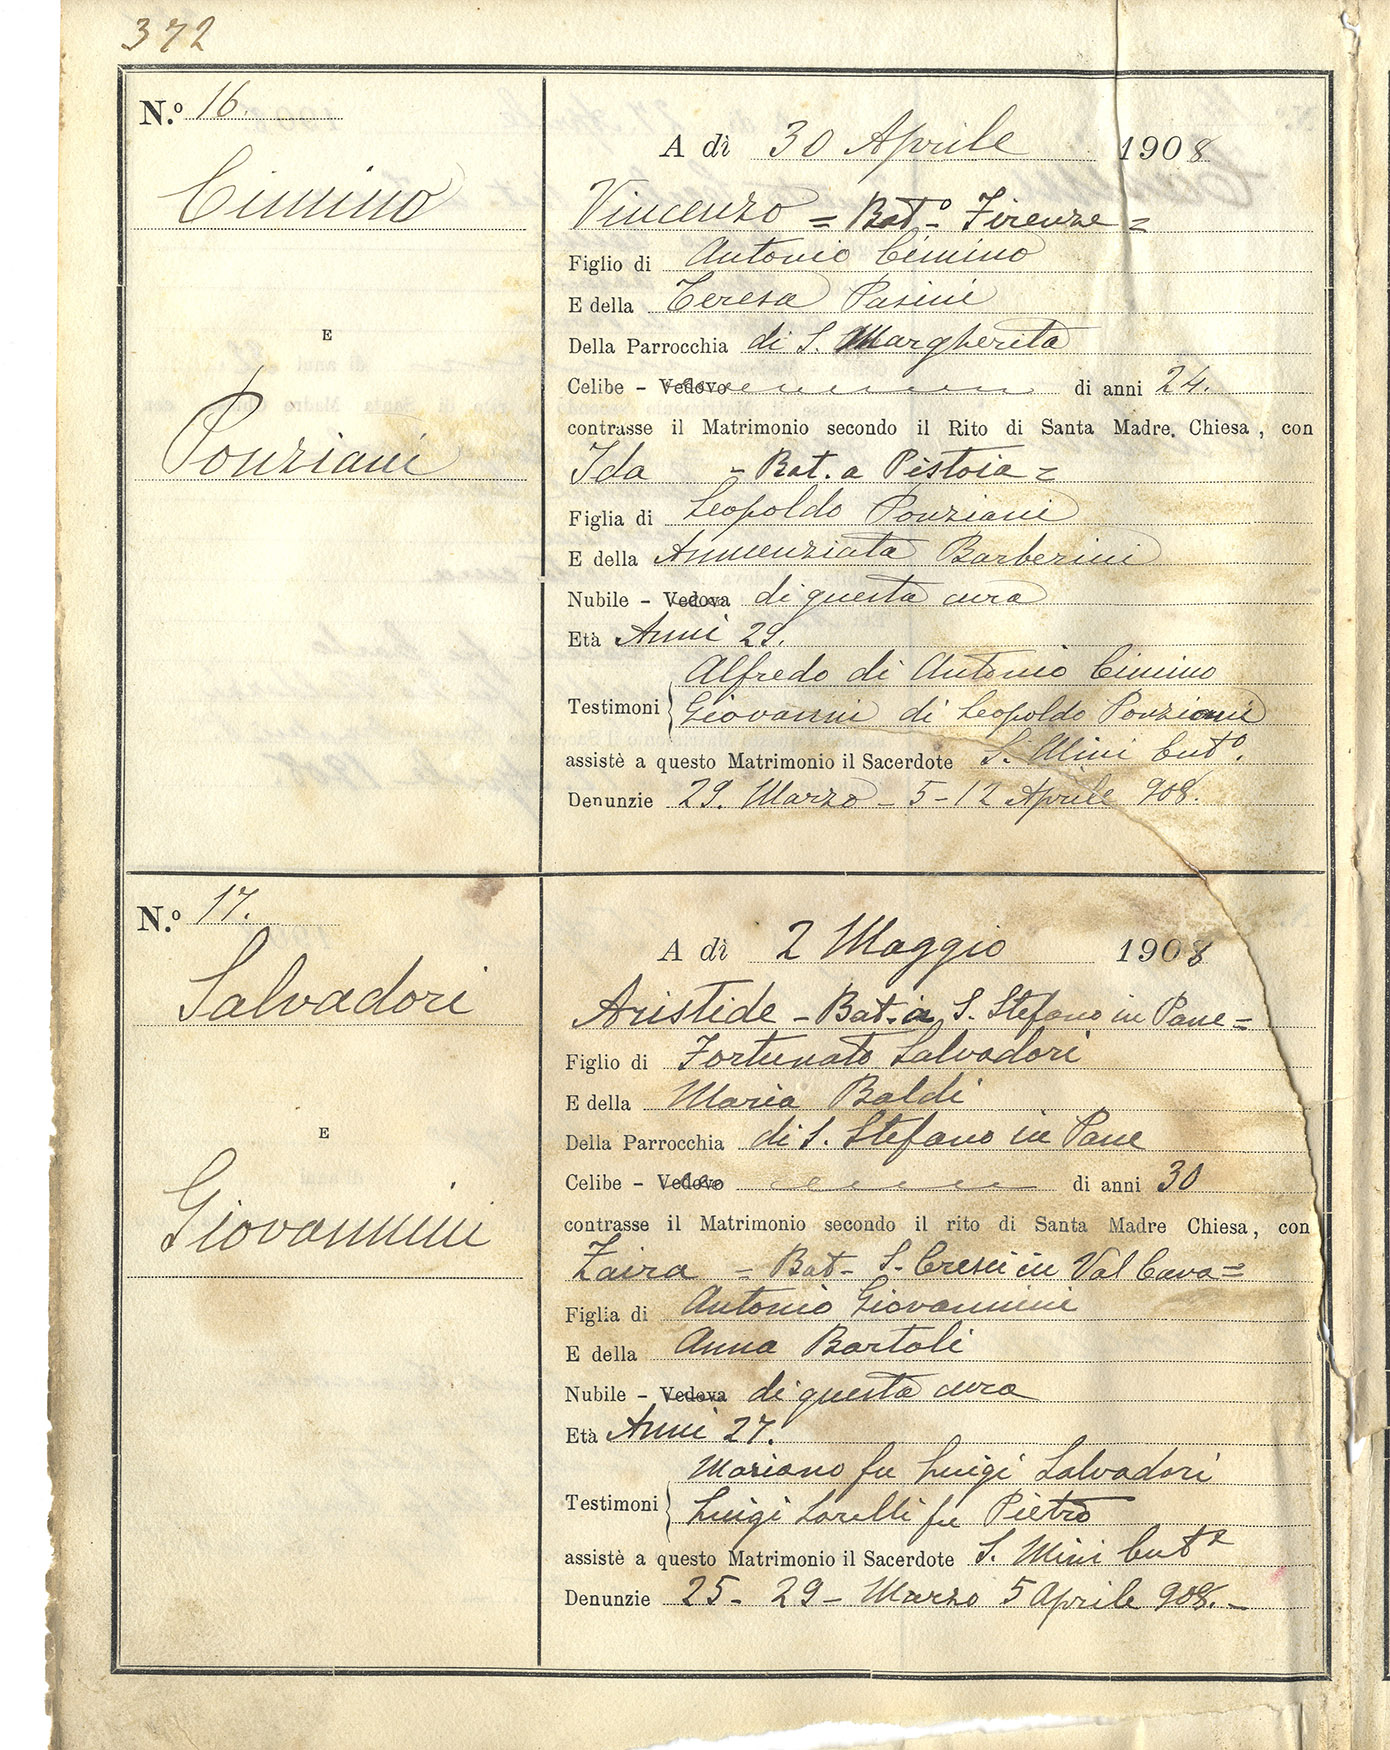 372
N.º 16.
Cimino
E
Ponziani
A dì 30 Aprile 1908
Vincenzo = Batº Firenze =
Figlio di Antonio Cimino
E della Teresa Pasini
Della Parrocchia di S. Margherita
Celibe - Vedovo di anni 24.
contrasse il Matrimonio secondo il Rito di Santa Madre Chiesa, con
Ida - Bat. a Pistoia =
Figlia di Leopoldo Ponziani
E della Annunziata Barberini
Nubile - Vedova di questa cura
Età Anni 29.
Testimoni { Alfredo di Antonio Cimino
Giovanni di Leopoldo Ponziani
assistè a questo Matrimonio il Sacerdote S. Mini Cutº.
Denunzie 29. Marzo - 5 - 12 Aprile 908.
N.º 17.
Salvadori
E
Giovannini
A dì 2 Maggio 1908
Aristide - Bat. a S. Stefano in Pane =
Figlio di Fortunato Salvadori
E della Maria Baldi
Della Parrocchia di S. Stefano in Pane
Celibe - Vedovo di anni 30
contrasse il Matrimonio secondo il rito di Santa Madre Chiesa, con
Zaira = Bat - S. Cresci in Val Cava =
Figlia di Antonio Giovannini
E della Anna Bartoli
Nubile - Vedova di questa cura
Età Anni 27.
Testimoni { Mariano fu Luigi Salvadori
Luigi Sorelli fu Pietro
assistè a questo Matrimonio il Sacerdote S. Mini
Denunzie 25 - 29 - Marzo 5 Aprile 908. -